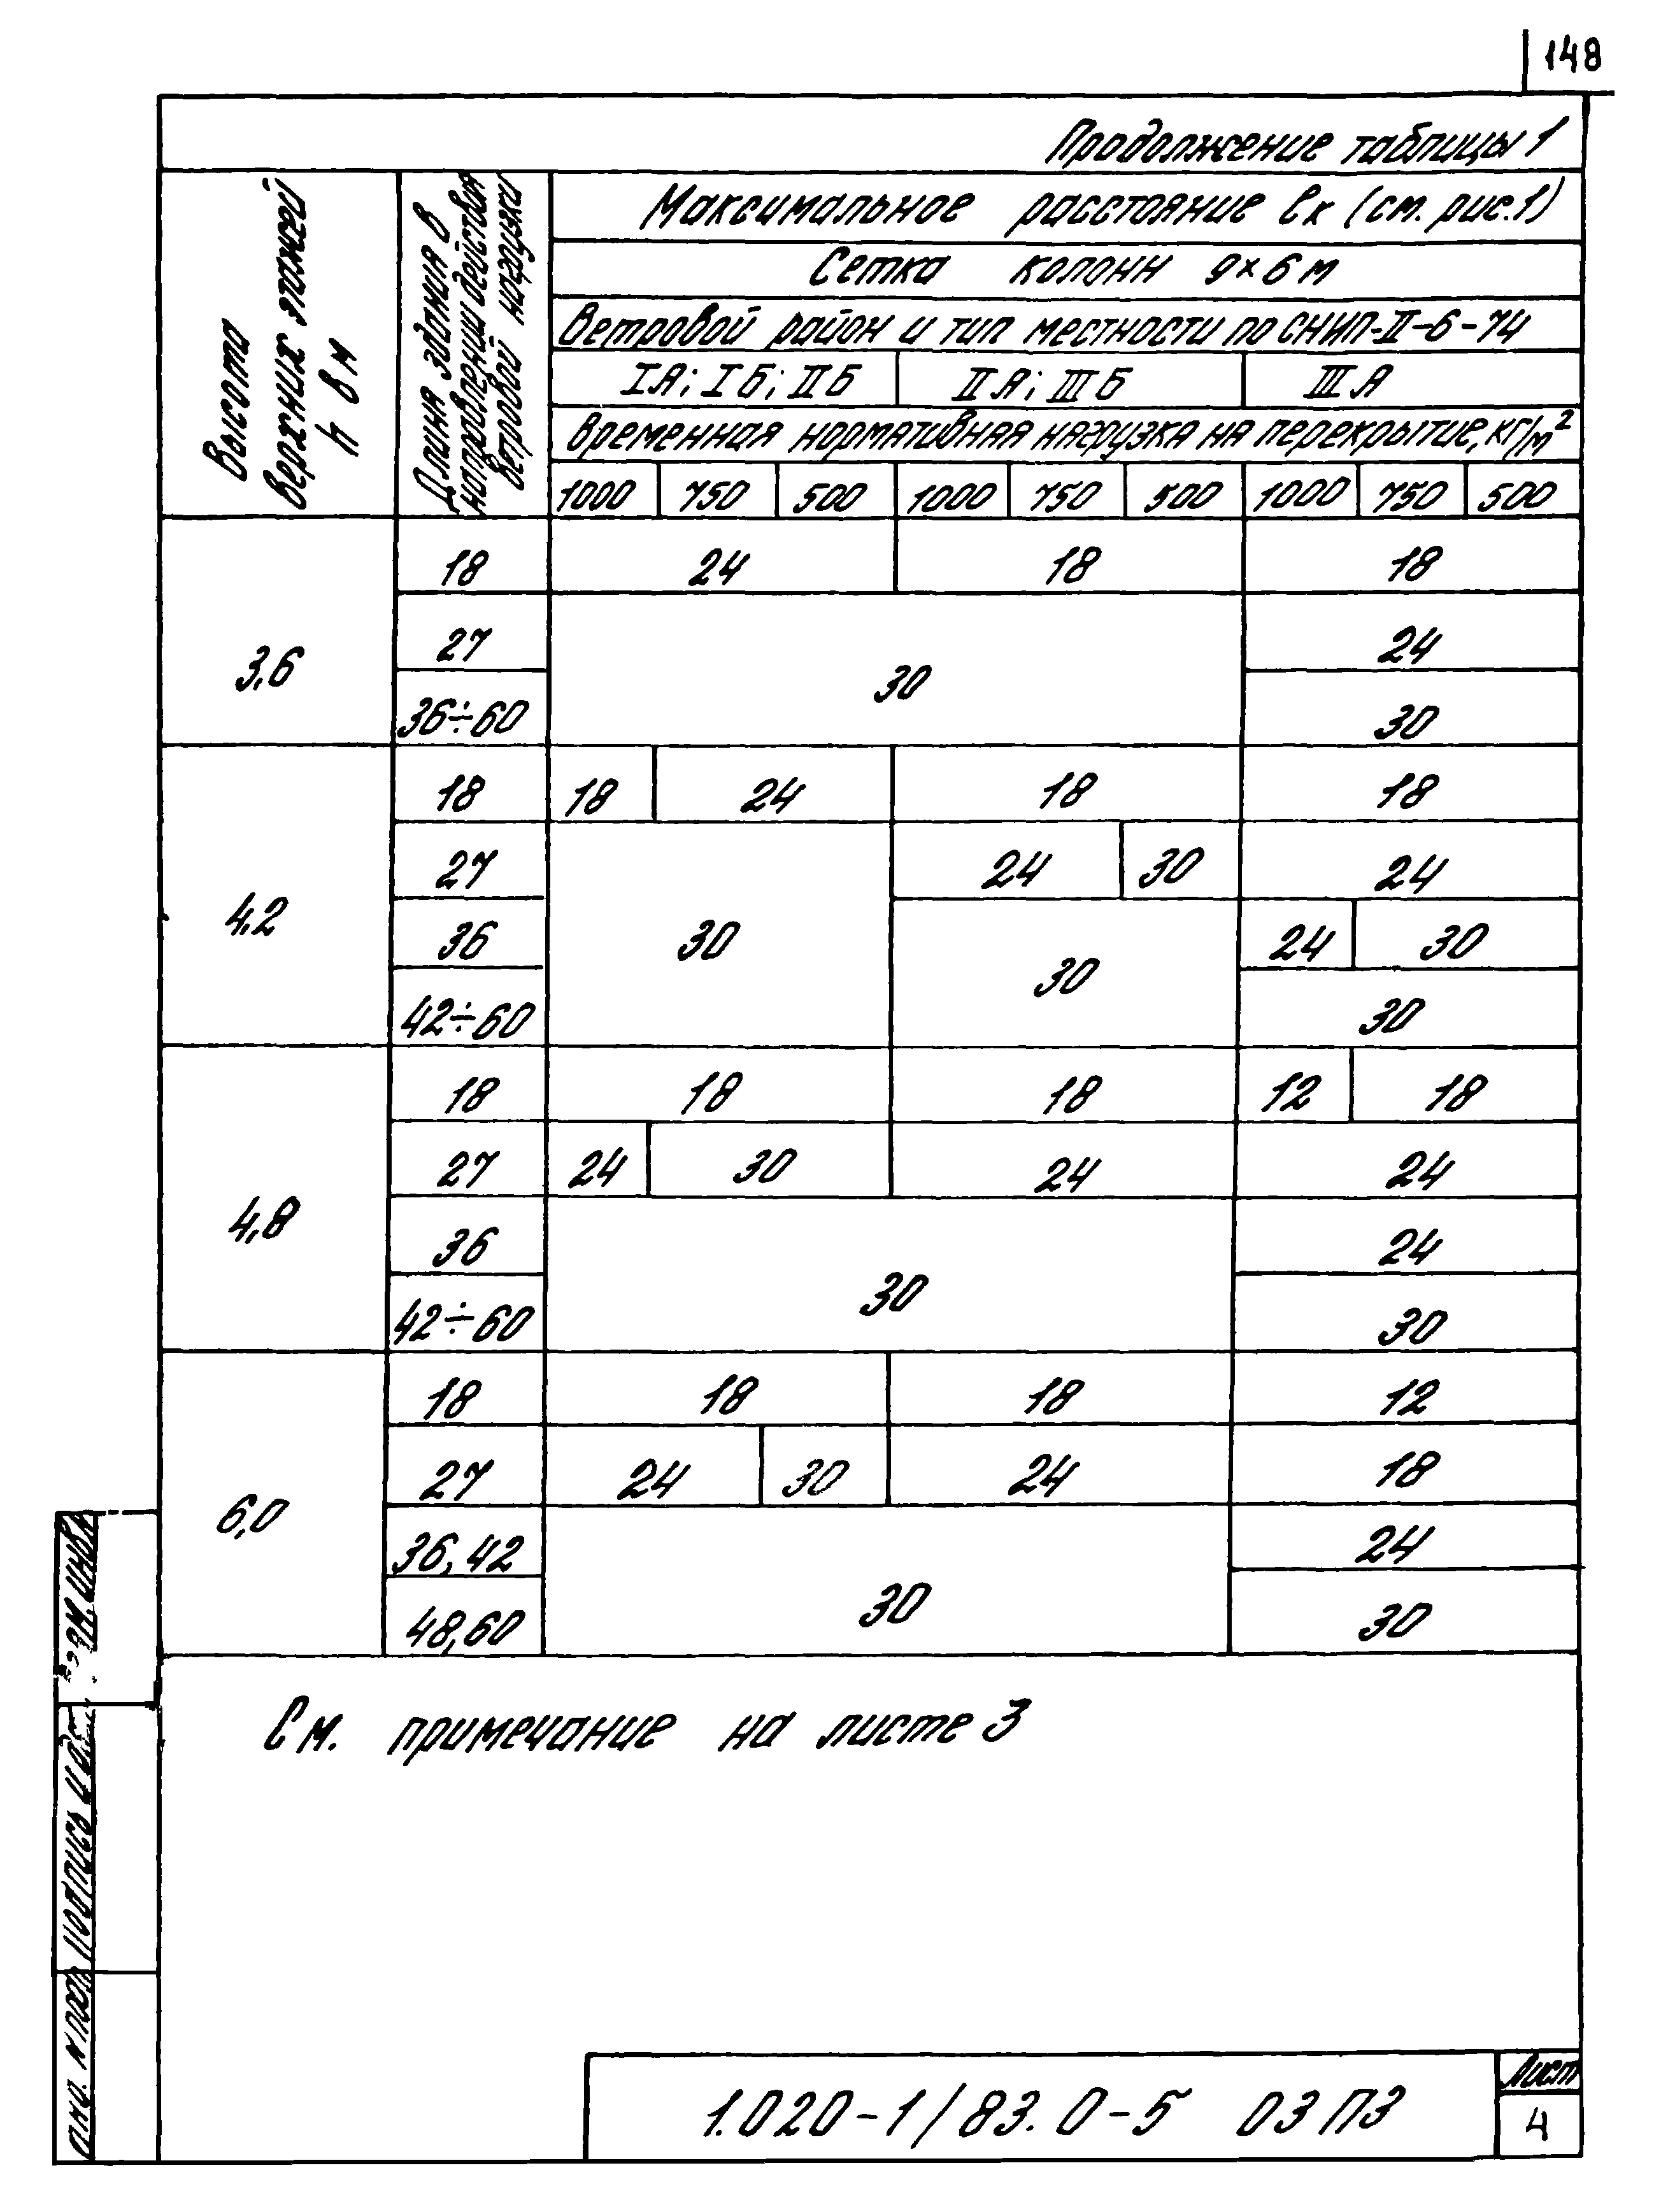 148
Продолжение таблицы 1
Высота
верхних этажей
h в м
Длина здания в
направлении действия
ветровой нагрузки
Максимальное расстояние ℓк (см. рис.1)
Сетка колонн 9×6 м
Ветровой район и тип местности по СНИП-II-6-74
IА; IБ; IIБ IIА; IIIБ IIIА
Временная нормативная нагрузка на перекрытие, кг/м²
1000 750 500 1000 750 500 1000 750 500
3,6
18 24 18 18
27 30 24
36÷60 30
4,2
18 18 24 18 18
27 30 24 30 24
36 30 24 30
42÷60 30
4,8
18 18 18 12 18
27 24 30 24 24
36 30 24
42÷60 30
6,0
18 18 18 12
27 24 30 24 18
36,42 30 24
48,60 30
См. примечание на листе 3
Подпись и
1.020-1/83.0-5 03 ПЗ
Лист
4